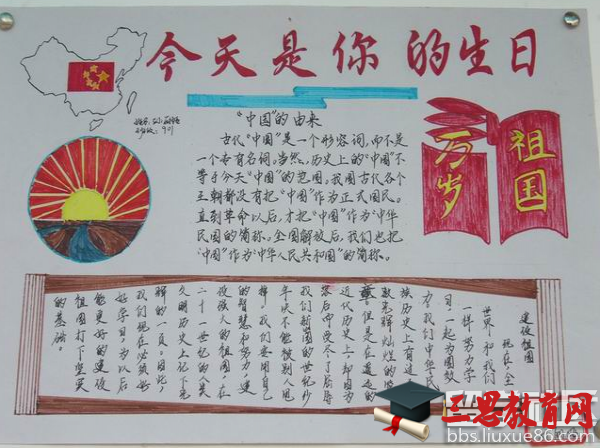 今天是你的生日
"中国"的由来
古代"中国"是一个形容词,而不是
一个专有名词。当然,历史上的"中国"不
等于今天"中国"的范围。我国古代各个
王朝都没有把"中国"作为正式国民。
直到革命以后,才把"中国"作为"中华
民国的简称。全国解放后,我们也把
"中国"作为"中华人民共和国"的简称。
祖国
万岁
建设祖国
现在,全
世界和我们
一样努力学
日一起为国效
力,我们中华民
族历史上有过
近代历史上,却因为
我们新国的世纪
年决不能被别人甩
掉,我们要用自己
的智慧和努力,建
设强大的祖国,在
二十一世纪的人类
文明历史上记下光
辉的一页。因此,
我们现在必须好
好学习,为以后
能更好的建设
祖国打下坚实
的基础。
三思教育网
bbs.liuxue86.com